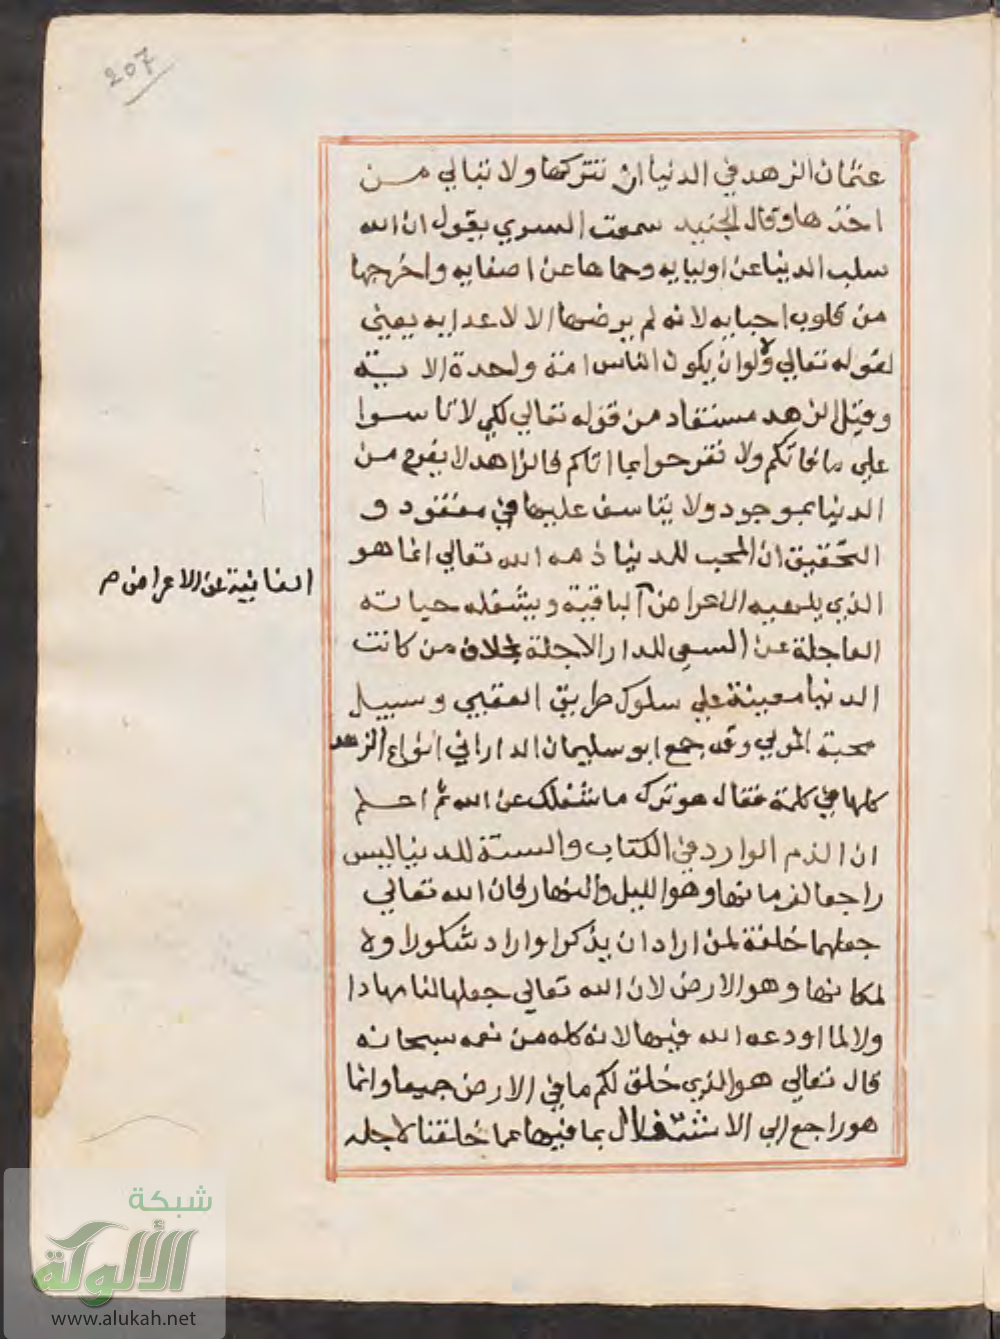 207
عثمان الزهد في الدنيا ان تتركها ولا تبالي من
اخذها وقال الجنيد سمعت السري يقول ان الله
سلب الدنيا عن اوليايه وحماها عن اصفايه واخرجها
من قلوب احبايه لانه لم يرضها الا لاعدايه يعني
لقوله تعالي ولولا ان يكون الناس امة واحدة الاية
وقيل الزهد مستفاد من قوله تعالي لكي لا تاسوا
علي ما فاتكم ولا تفرحوا بما اتاكم فالزاهد لا يفرح من
الدنيا بموجود ولا يتاسف عليها في مفقود و
التحقيق ان المحب للدنيا ذمه الله تعالي انما هو
الذي يلهيه الاعراض الباقية ويشغله حياته
الفانية عن الاعراض صح
العاجلة عن السعي للدار الاجلة بخلاف من كانت
الدنيا معينة علي سلوك طريق العقبي وسبيل
محبة المولي وقد جمع ابو سليمان الداراني انواع الزهد
كلها في كلمة فقال هو ترك ما شغلك عن الله ثم اعلم
ان الذم الوارد في الكتاب والسنة للدنيا ليس
راجعا لزمانها وهو الليل والنهار فان الله تعالي
جعلهما خلفة لمن اراد ان يذكر او اراد شكورا ولا
لمكانها وهو الارض لان الله تعالي جعلها لنا مهادا
ولا لما اودعه الله فيها لانه كله من نعمه سبحانه
قال تعالي هو الذي خلق لكم ما في الارض جميعا وانما
هو راجع الي الاشتغال بما فيها عما خلقنا لاجله
شبكة
الألوكة
www.alukah.net